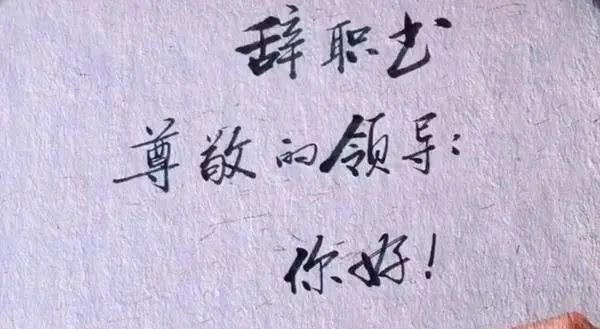 辞职书
尊敬的领导:
你好!